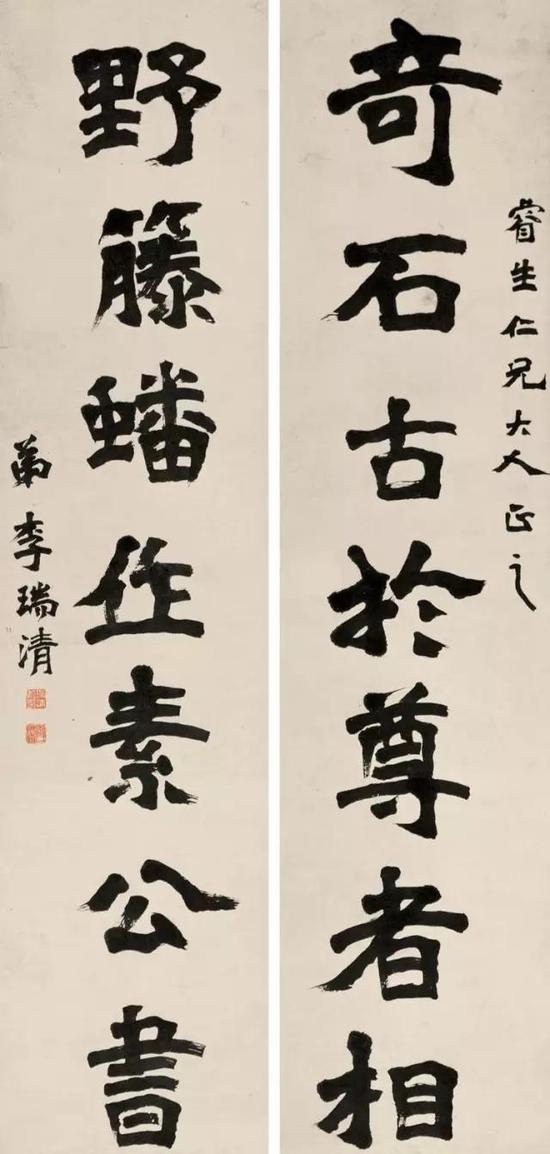 睿生仁兄大人正之
奇石古於尊者相
野籐蟠作素公書
弟李瑞清